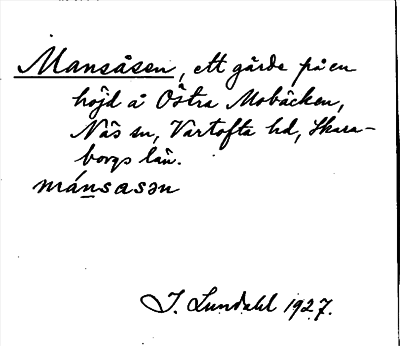 Mansåsen, ett gärde på en
höjd å Östra Mobäcken,
Näs sn, Vartofta hd, Skara-
borgs län.
mánsasən
J. Lundahl 1927.